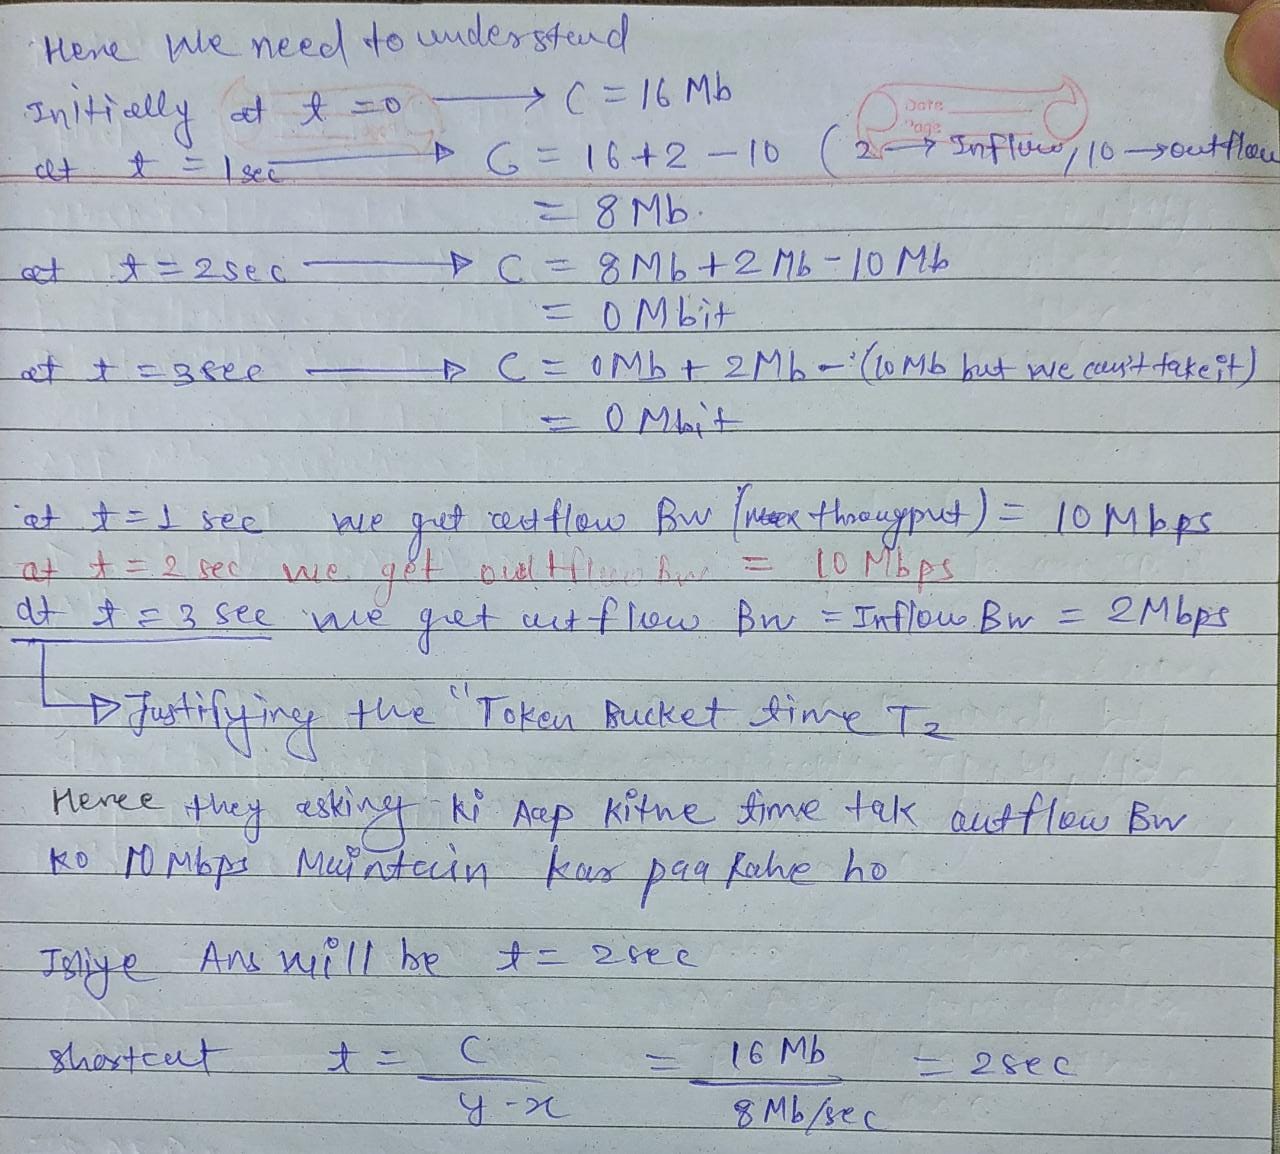 Here we need to understand
Initially at t = 0 → C = 16 Mb
Date
Page
at t = 1 sec → C = 16 + 2 - 10 ( 2 → Inflow, 10 → outflow
= 8 Mb.
at t = 2 sec → C = 8 Mb + 2 Mb - 10 Mb
= 0 Mbit
at t = 3 sec → C = 0 Mb + 2 Mb - (10 Mb but we can't take it)
= 0 Mbit
at t = 1 sec we get outflow Bw (max througput) = 10 Mbps
at t = 2 sec we get outflow Bw = 10 Mbps
at t = 3 sec we get outflow Bw = Inflow Bw = 2 Mbps
→ Justifying the "Token Bucket time T2
Here they asking ki Aap kitne time tak outflow Bw
ko 10 Mbps Maintain kar paa Rahe ho
Isliye Ans will be t = 2 sec
shortcut t = C / y - x = 16 Mb / 8 Mb/sec = 2 sec